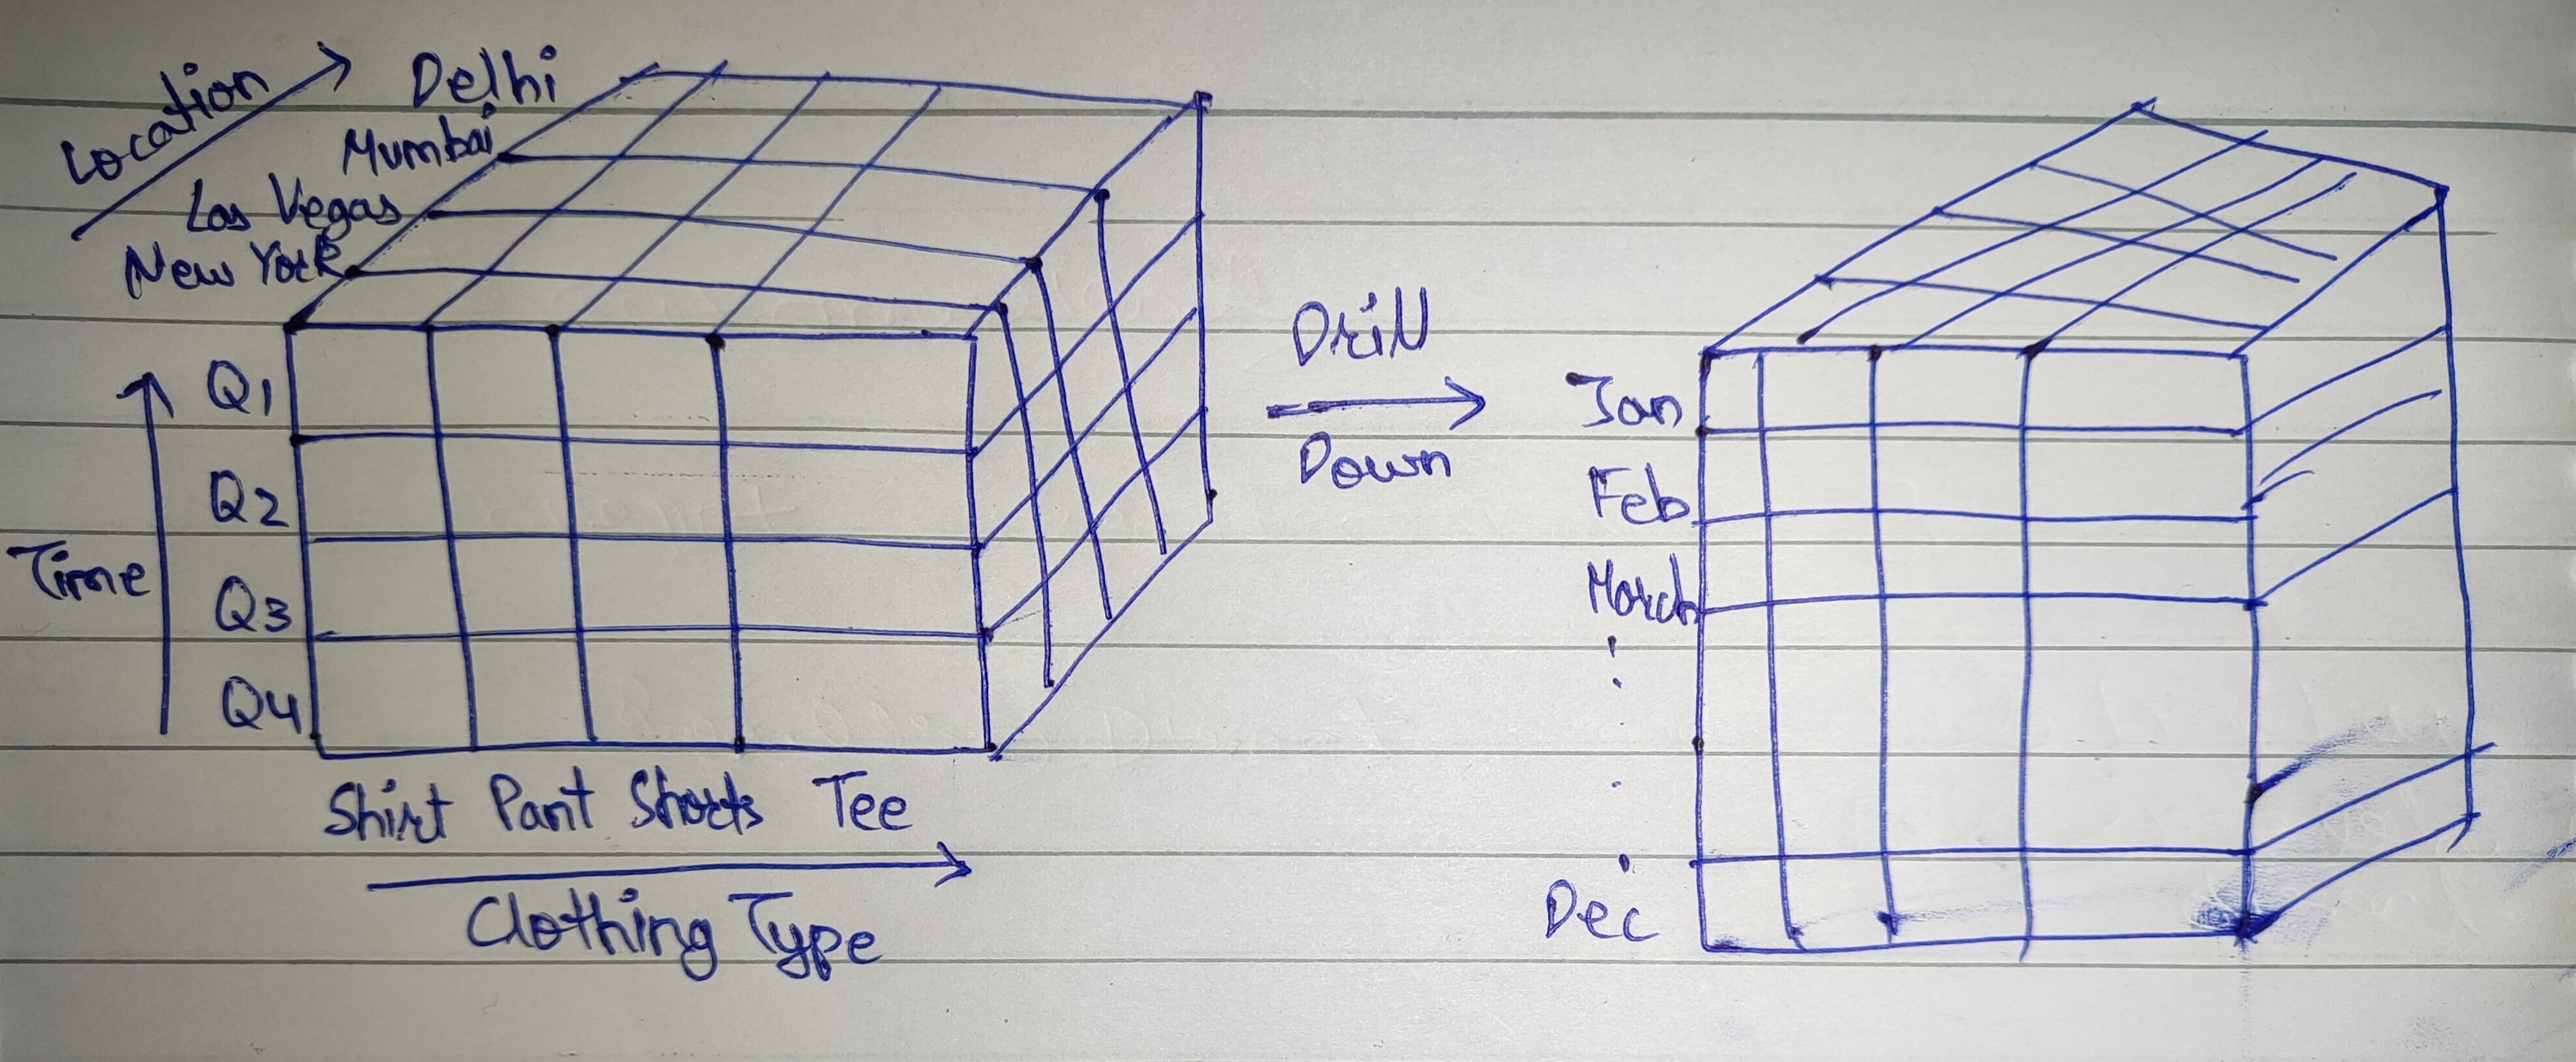 Location
Delhi
Mumbai
Las Vegas
New York
Time
Q1
Q2
Q3
Q4
Shirt Pant Shorts Tee
Clothing Type
Drill
Down
Jan
Feb
March
Dec